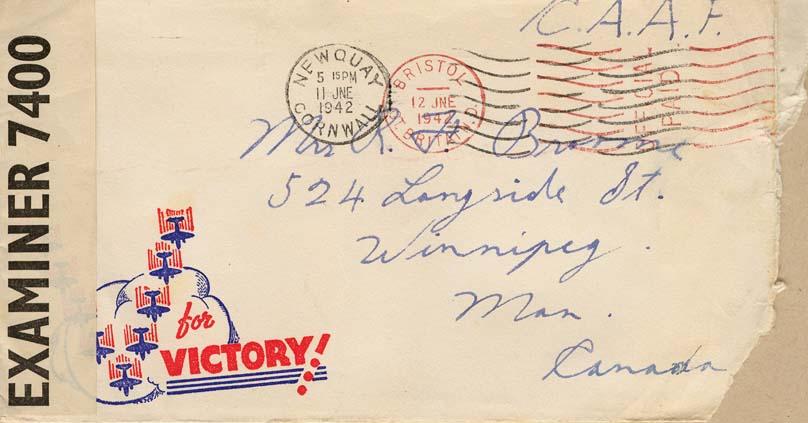 C.A.A.F.
EXAMINER 7400
NEWQUAY
5 15PM
11 JNE
1942
CORNWALL
BRISTOL
12 JNE
1942
GT. BRITAIN
OFFICIAL
PAID
Mrs R. H. Broome
524 Langside St.
Winnipeg.
Man.
Canada
for
VICTORY!